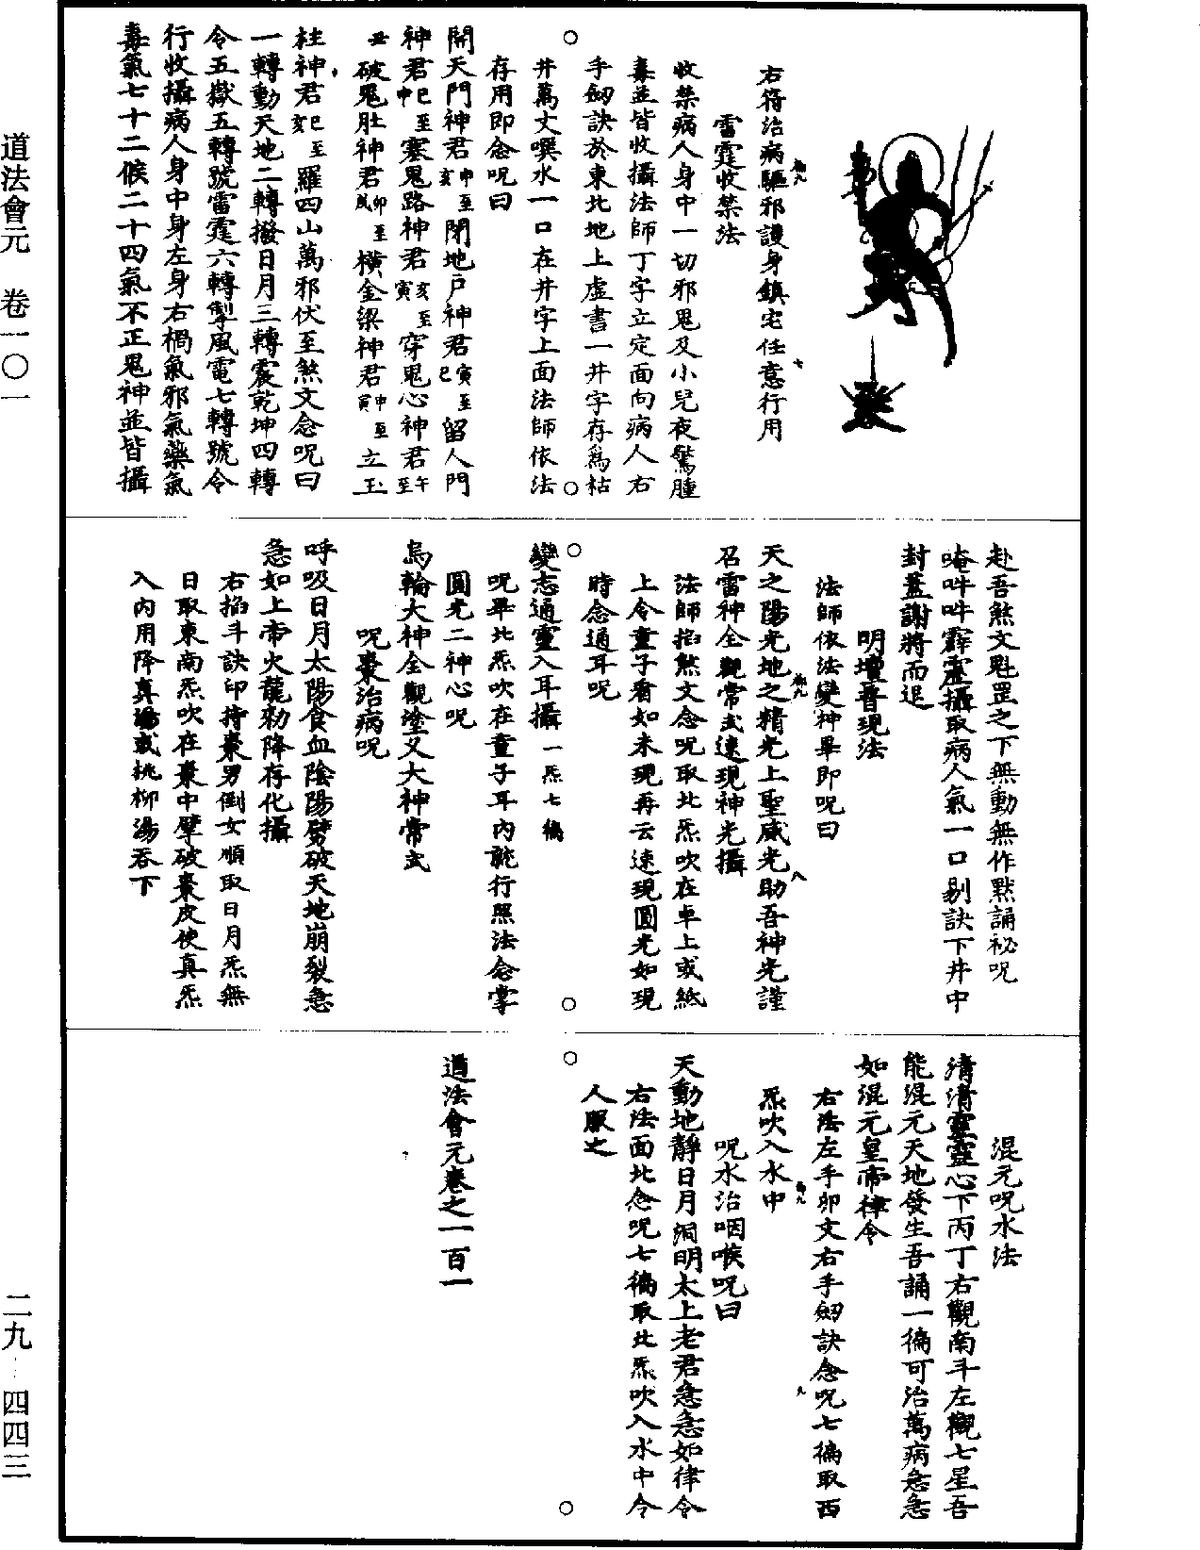 右符治病驅邪護身鎮宅任意行用
雷霆收禁法
收禁病人身中一切邪鬼及小兒夜驚腫
毒並皆收攝法師丁字立定面向病人右
手劒訣於東北地上虛書一井字存爲枯
井萬丈噀水一口在井字上面法師依法
存用即念呪曰
開天門神君申至亥閉地戶神君寅至巳留人門
神君巳至申塞鬼路神君亥至寅穿鬼心神君午至
丑破鬼肚神君卯至戌橫金梁神君申至寅立玉
柱神君巳至亥羅四山萬邪伏至煞文念呪曰
一轉動天地二轉撥日月三轉震乾坤四轉
令五嶽五轉號雷霆六轉掣風電七轉號令
行收攝病人身中身左身右禍氣邪氣藥氣
毒氣七十二候二十四氣不正鬼神並皆攝
赴吾煞文魁罡之下無動無作黙誦祕呪
唵吽吽霹靂攝取病人氣一口剔訣下井中
封蓋謝將而退
明壇普現法
法師依法變神畢即呪曰
天之陽光地之精光上聖威光助吾神光謹
召雷神全觀常武速現神光攝
法師掐煞文念呪取北炁吹在卓上或紙
上令童子看如未現再云速現圓光如現
時念通耳呪
變志通靈入耳攝一炁七徧
呪畢北炁吹在童子耳內能行照法念掌
圓光二神心呪
烏輪大神全觀塗乂大神常武
呪棗治病呪
呼吸日月太陽食血陰陽劈破天地崩裂急
急如上帝火龍勑降存化攝
右掐斗訣印持棗男倒女順取日月炁無
日取東南炁吹在棗中擘破棗皮使真炁
入內用降真湯或桃柳湯吞下
混元呪水法
清清靈靈心下丙丁右觀南斗左觀七星吾
能混元天地發生吾誦一徧可治萬病急急
如混元皇帝律令
右法左手卯文右手劒訣念呪七徧取西
炁吹入水中
呪水治咽喉呪曰
天動地靜日月洞明太上老君急急如律令
右法面北念呪七徧取北炁吹入水中令
人服之
道法會元卷之一百一
道法會元 卷一〇一
二九-四四三